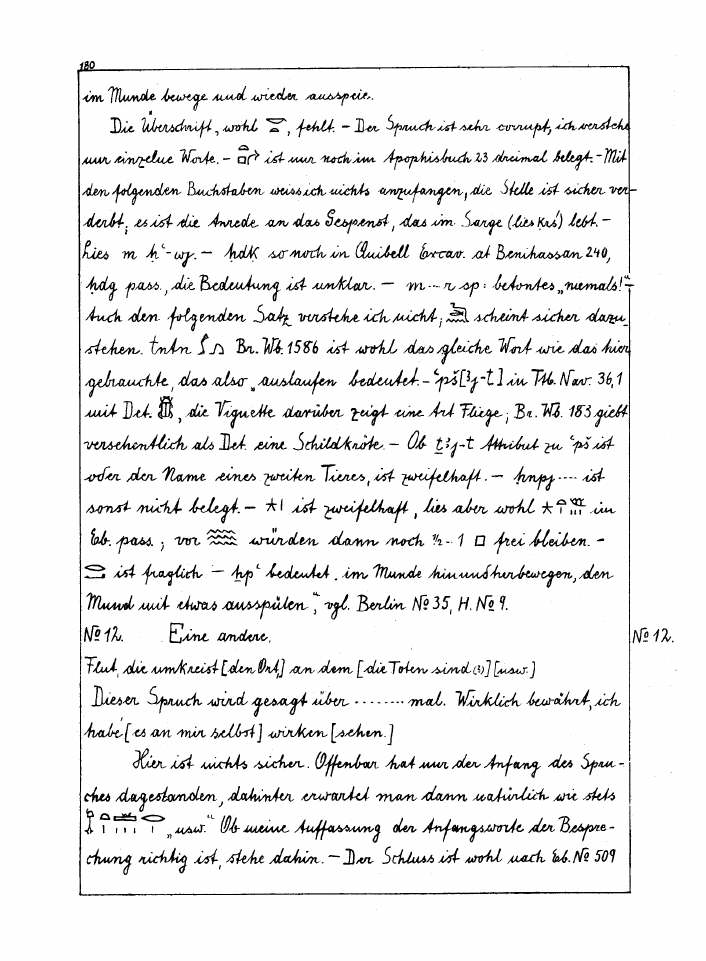 180
im Munde bewege und wieder ausspeie.
Die Überschrift, wohl , fehlt. – Der Spruch ist sehr corrupt, ich verstehe
nur einzelne Worte. – ist nur noch im Apophisbuch 23 dreimal belegt. – Mit
den folgenden Buchstaben weiss ich nichts anzufangen, die Stelle ist sicher ver-
derbt; es ist die Anrede an das Gespenst, das im Sarge (lies krś) lebt. –
Lies m ḥʿ-wj. – ḥdk so noch in Quibell Excav. at Benihassan 240,
ḥdg pass., die Bedeutung ist unklar. – m --- r sp: betontes „niemals!“ –
Auch den folgenden Satz verstehe ich nicht; scheint sicher dazu
stehen. tntn Br. Wb. 1586 ist wohl das gleiche Wort wie das hier
gebrauchte, das also „auslaufen bedeutet. – ʿpš[ꜣj-t] in Ttb. Nav. 36,1
mit Det. , die Vignette darüber zeigt eine Art Fliege; Br. Wb. 183 giebt
versehentlich als Det. eine Schildkröte. – Ob ṯꜣj-t Attribut zu ʿpš ist
oder der Name eines zweiten Tieres, ist zweifelhaft. – ḥnpj ···· ist
sonst nicht belegt. – ist zweifelhaft, lies aber wohl im
Eb. pass.; vor würden dann noch ½ - 1 □ frei bleiben. –
ist fraglich – ḥpʿ bedeutet „im Munde hin und herbewegen, den
Mund mit etwas ausspülen“, vgl. Berlin № 35, H. № 9.
№ 12. Eine andere.
№ 12.
Flut, die umkreist [den Ort,] an dem [die Toten sind (?)] [usw.]
Dieser Spruch wird gesagt über ········ mal. Wirklich bewährt, ich
habe [es an mir selbst] wirken [sehen.]
Hier ist nichts sicher. Offenbar hat nur der Anfang des Spru-
ches dagestanden, dahinter erwartet man dann natürlich wie stets
„usw.“ Ob meine Auffassung der Anfangsworte der Bespre-
chung richtig ist, stehe dahin. – Der Schluss ist wohl nach Eb. № 509